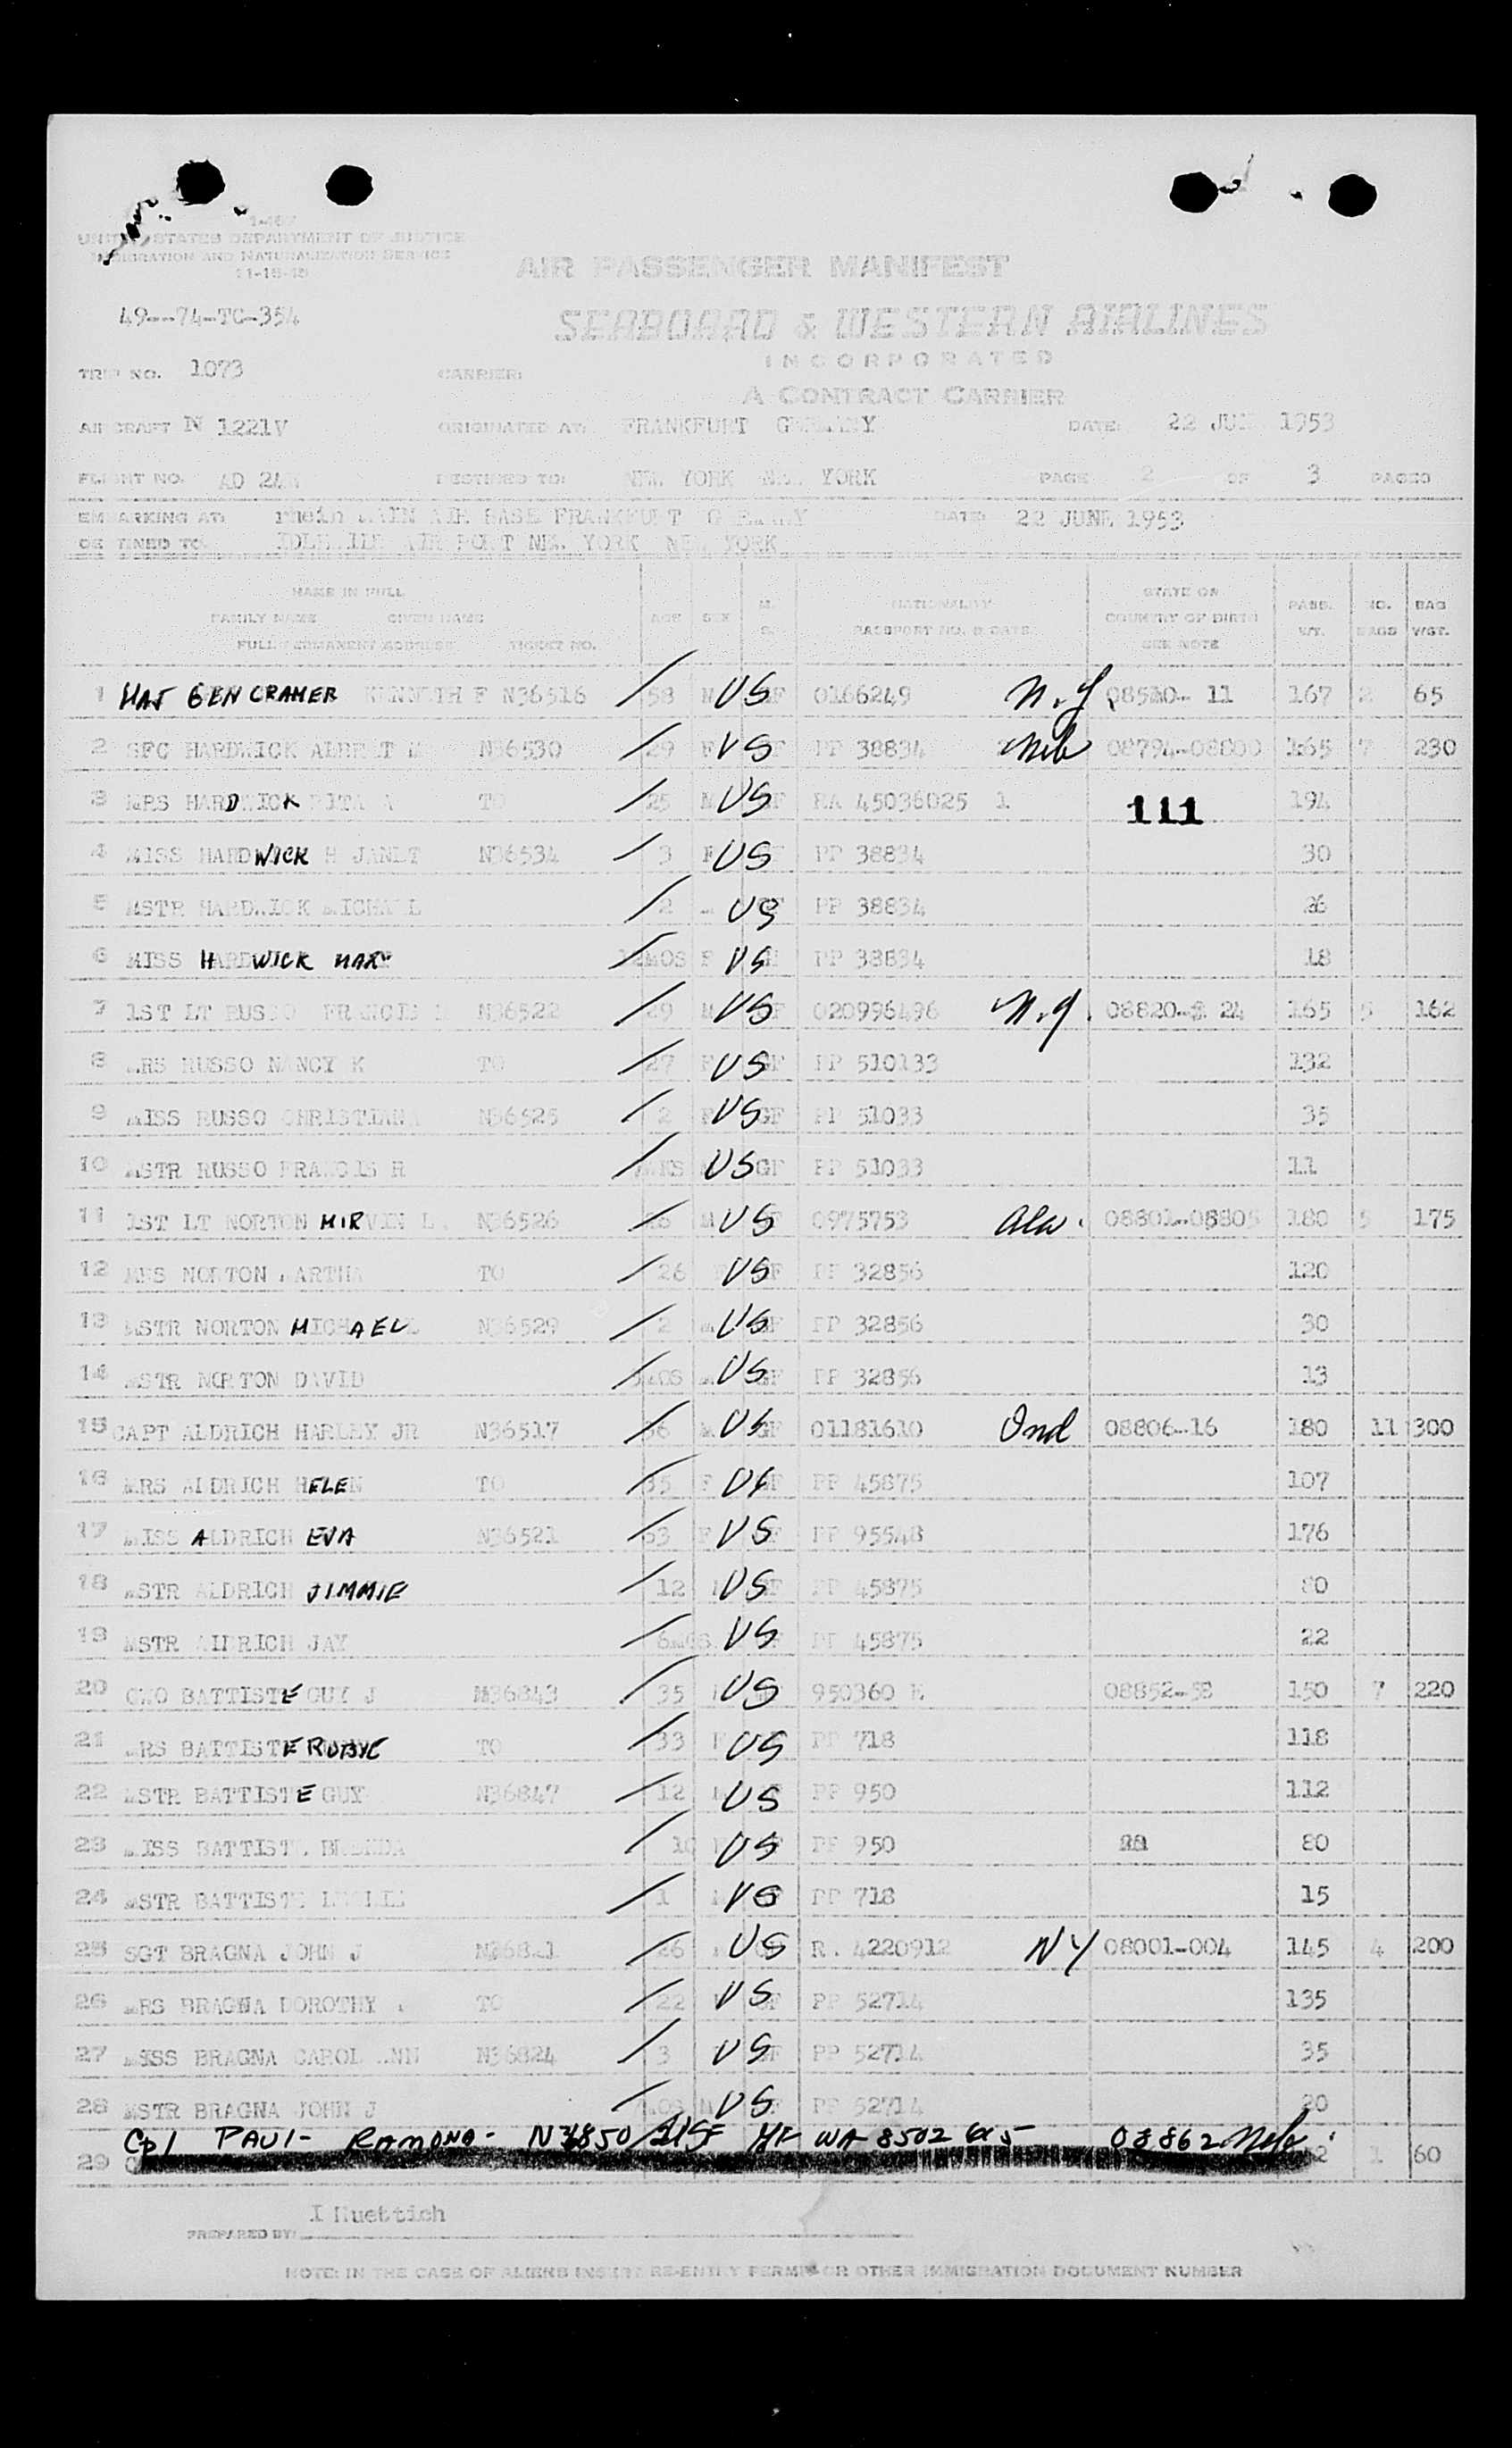 I-467
UNITED STATES DEPARTMENT OF JUSTICE
IMMIGRATION AND NATURALIZATION SERVICE
11-15-45
AIR PASSENGER MANIFEST
49--74-TC-354
SEABOARD & WESTERN AIRLINES
INCORPORATED
TRIP NO. 1073 CARRIER:
A CONTRACT CARRIER
AIRCRAFT N 1221V ORIGINATED AT: FRANKFURT GERMANY DATE: 22 JUN 1953
FLIGHT NO. AD 2 DESTINED TO: NEW YORK NEW YORK PAGE 2 OF 3 PAGES
EMBARKING AT: rhein MAIN AIR BASE FRANKFURT GERMANY DATE: 22 JUNE 1953
DESTINED TO: IDLEWILD AIR PORT NEW YORK NEW YORK
NAME IN FULL FAMILY NAME GIVEN NAME FULL PERMANENT ADDRESS TICKET NO. AGE SEX M. S. NATIONALITY PASSPORT NO. & DATE STATE OR COUNTRY OF BIRTH SEE NOTE PASS. WT. NO. BAGS BAG WGT.
1 MAJ GEN CRAMER KENNETH F N36516 / 58 M US 0166249 N.Y. 08510- 11 167 2 65
2 SFC HARDWICK ALBERT N36530 / 29 US PP 38834 Neb 08794-08800 165 7 230
3 MRS HARDWICK RITA TO / 25 US RA 45036025 1 111 194
4 MISS HARDWICK H JANET N36534 / 3 F US PP 38834 30
5 MSTR HARDWICK MICHAEL / 2 US PP 38834 26
6 MISS HARDWICK MARY / MOS F US PP 38834 18
7 1ST LT RUSSO FRANCIS N36522 / 29 M US 020996496 N.J. 08820- 24 165 5 162
8 MRS RUSSO NANCY K TO / 27 F US PP 510133 132
9 MISS RUSSO CHRISTIANA N36525 / 2 F US GF PP 51033 35
10 MSTR RUSSO FRANCIS H / US GF PP 51033 11
11 1ST LT NORTON MIRVIN L. N36526 / 26 M US 0975753 Ala. 08801-08805 180 5 175
12 MRS NORTON MARTHA TO / 26 US PP 32856 120
13 MSTR NORTON MICHAEL N36529 / 2 US PP 32856 30
14 MSTR NORTON DAVID / MOS US PP 32856 13
15 CAPT ALDRICH HARLEY JR N36517 / 36 M US GF 01181610 Ind 08806-16 180 11 300
16 MRS ALDRICH HELEN TO / 35 F US PP 45875 107
17 MISS ALDRICH EVA N36521 / 63 F US PP 95548 176
18 MSTR ALDRICH JIMMIE / 12 US PP 45875 80
19 MSTR ALDRICH JAY / 6mOS US PP 45875 22
20 CWO BATTISTE GUY J N36843 / 35 US 950360 E 08852-58 150 7 220
21 MRS BATTISTE RUBYE TO / 33 US PP 718 118
22 MSTR BATTISTE GUY N36847 / 12 US PP 950 112
23 MISS BATTISTE BRENDA / 10 US PP 950 80
24 MSTR BATTISTE / 1 US PP 718 15
25 SGT BRAGNA JOHN J / 26 US 4220912 NY 08001-004 145 4 200
26 MRS BRAGNA DOROTHY TO / 22 US PP 52714 135
27 MISS BRAGNA CAROL ANN N36824 / 3 US PP 52714 35
28 MSTR BRAGNA JOHN J / MOS M US PP 52714 20
Cpl PAUL RAMONA N36850 WA 8502 08862 Neb.
29 1 60
I Huettich
PREPARED BY:
NOTE: IN THE CASE OF ALIENS INSERT RE-ENTRY PERMIT OR OTHER IMMIGRATION DOCUMENT NUMBER